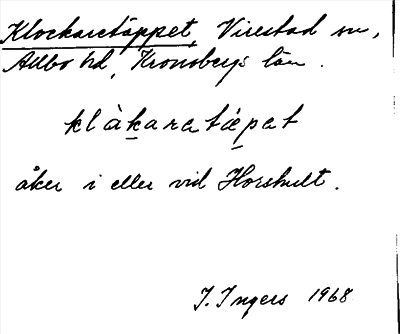 Klockaretäppet, Virestad sn,
Allbo hd, Kronobergs län.
klàkaratæpat
åker i eller vid Horshult.
I. Ingers 1968